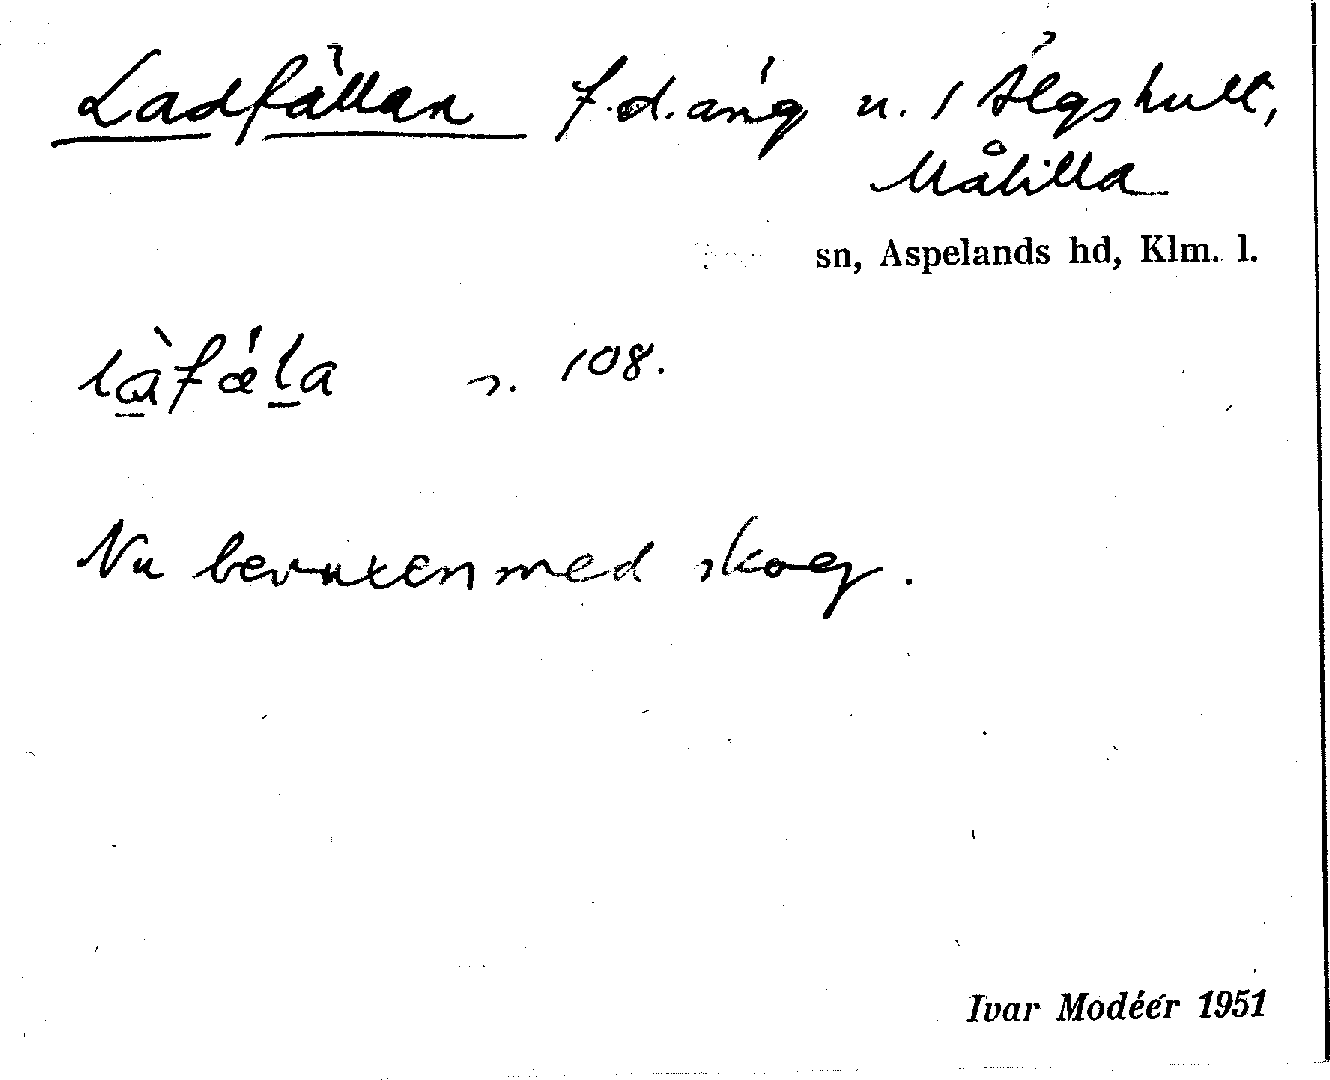 Ladfällan f.d. äng u. 1 Älgshult,
Målilla
sn, Aspelands hd, Klm. l.
s. 108.
Nu bevuxen med skog.
Ivar Modéer 1951